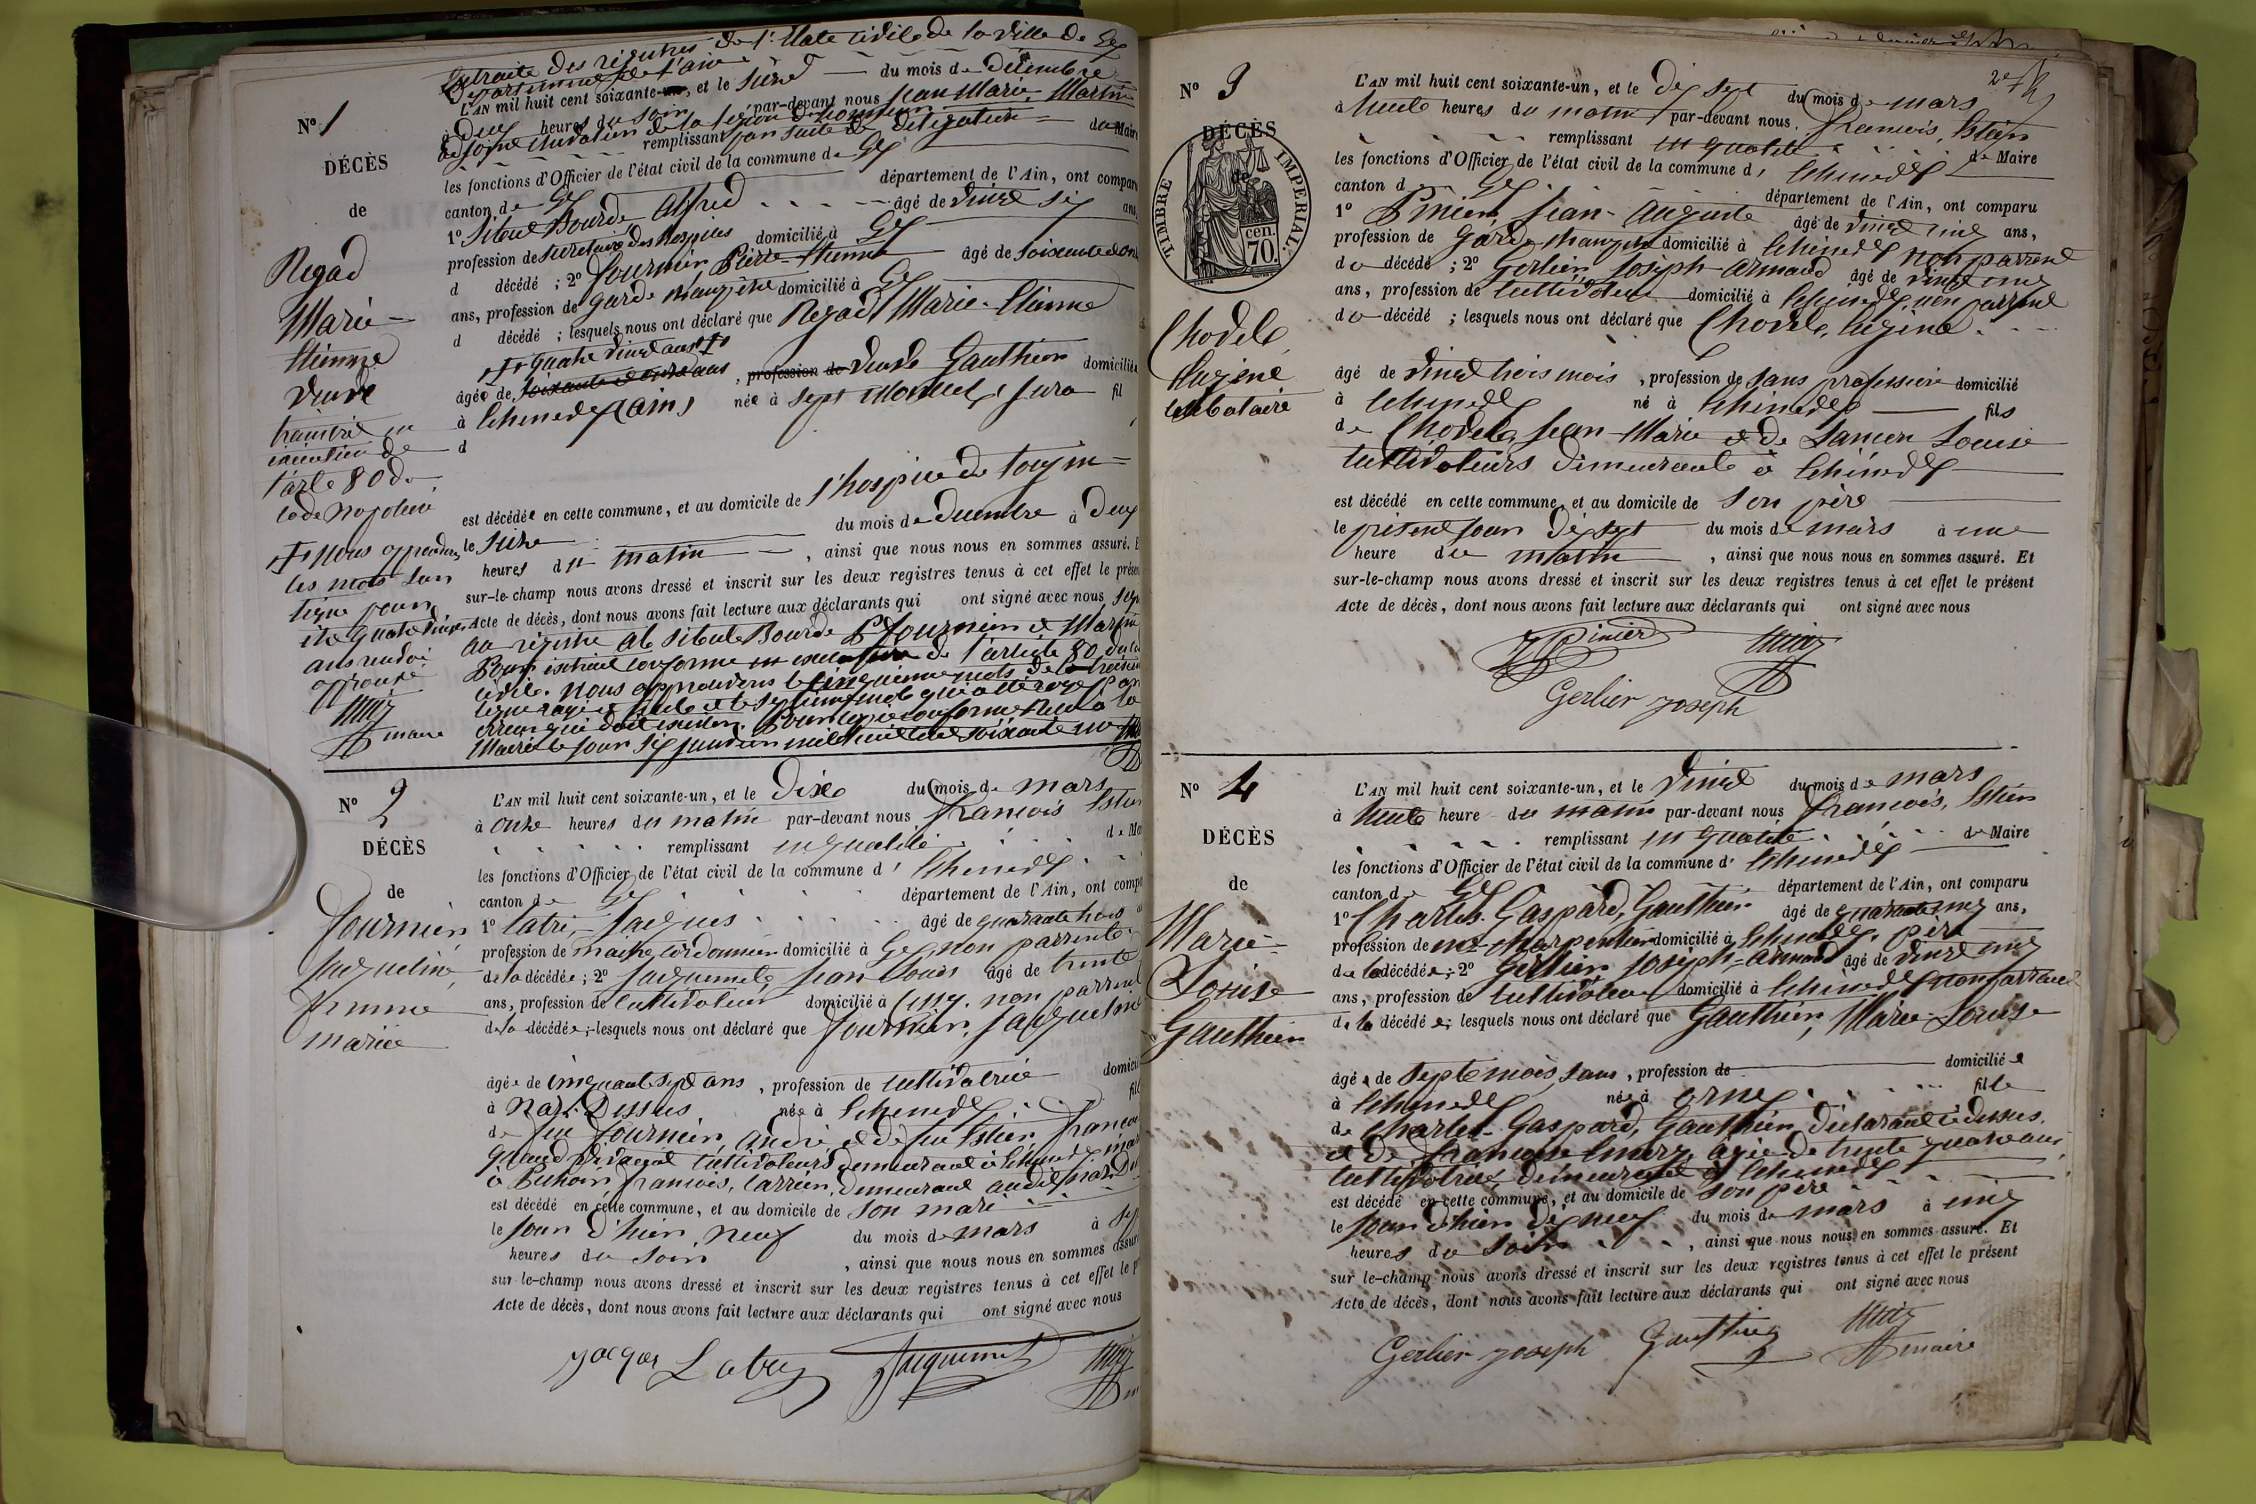 Extraite des registres de l'Etate civile de la ville de Gex
Département de l'ain
N° 1
L'AN mil huit cent soixante, et le seize du mois de décembre
à deux heures du soir par-devant nous Jean Marie Martin
remplissant par suite de délégation du Maire
DÉCÈS
les fonctions d'Officier de l'état civil de la commune de Gex
de
canton de Gex département de l'Ain, ont comparu
1° Bourde Alfred âgé de vingt six ans,
profession de secretaire des hospices domicilié à Gex
Regad
Marie
Etienne
veuve
transcrit en
exécution de
l'arte 80 du
code Napoleoné
d décédé ; 2° Fournier Pierre Etienne âgé de soixante
ans, profession de garde champêtre domicilié à Gex
d décédé ; lesquels nous ont déclaré que Regad Marie-Etienne
quatre vingt ans
âgée de soixante et onze ans, profession de veuve Gauthier domiciliée
à Echenevex (ain) née à Sept Moncel Jura fil
d
est décédée en cette commune, et au domicile de l'hospice de Tougin
le seize du mois de decembre à deux
heures du matin, ainsi que nous nous en sommes assuré. E
sur-le-champ nous avons dressé et inscrit sur les deux registres tenus à cet effet le présen
Acte de décès, dont nous avons fait lecture aux déclarants qui ont signé avec nous
nous approuvons
les mots
quatre vingt
ans
approuvé
maire
au registre Bourde P Fournier et Martin
Pour extrait conforme en execution de l'article 80 du
civile. Nous approuvons le cinquieme mots de la
N° 2
DÉCÈS
de
Fournier
Jacqueline
femme
mariée
L'AN mil huit cent soixante-un, et le dix du mois de mars
à onze heures du matin par-devant nous François Estier
remplissant en qualité de Ma
les fonctions d'Officier de l'état civil de la commune d' Echenevex
canton de Gex département de l'Ain, ont comp
1° Latri Jacques âgé de quarante trois
profession de maitre cordonnier domicilié à Gex, non parrente
de la décédée ; 2° Jacquemete Jean Louis âgé de trente
ans, profession de cultivateur domicilié à Cessy. non parrent
de la décédée ; lesquels nous ont déclaré que Fournier, Jacqueline
âgée de cinquante sept ans, profession de cultivatrice domici
à Naz-Dessus née à Echenevex fil
de feu Fournier, André et de feu Estier Françoi
cultivateurs demeurant à Echenevex
à François, Carrier, demeurant audit Naz
est décédé en cette commune, et au domicile de son mari
le jour d'hier, neuf du mois de mars à sep
heures du soir, ainsi que nous nous en sommes assur
sur-le-champ nous avons dressé et inscrit sur les deux registres tenus à cet effet le p
Acte de décès, dont nous avons fait lecture aux déclarants qui ont signé avec nous
Jacques Latry Jacquemet
N° 3
DÉCÈS
de
TIMBRE IMPÉRIAL.
70 cen.
Chodele
Eugène
celibataire
L'AN mil huit cent soixante-un, et le dix sept du mois de mars
à huite heures du matin par-devant nous, François, Estier
remplissant en qualité de Maire
les fonctions d'Officier de l'état civil de la commune d' Echenevex
canton de Gex département de l'Ain, ont comparu
1° Pinier, Jean-Auguste âgé de vingt cinq ans,
profession de Garde champete domicilié à Echenevex non parrent
du décédé ; 2° Gerlier, Joseph-armand âgé de vingt cinq
ans, profession de cultivateur domicilié à Echenevex, non parrent
du décédé ; lesquels nous ont déclaré que Chodele, Eugène.
âgé de vingt trois mois, profession de sans profession domicilié
à Echenevex né à Echenevex fils
de Chodele, Jean-Marie et de Lancon Louise
cultivateurs demeurant à Echenevex
est décédé en cette commune, et au domicile de son père
le présent jour dix sept du mois de mars à une
heure du matin, ainsi que nous nous en sommes assuré. Et
sur-le-champ nous avons dressé et inscrit sur les deux registres tenus à cet effet le présent
Acte de décès, dont nous avons fait lecture aux déclarants qui ont signé avec nous
Pinier
Gerlier joseph
N° 4
DÉCÈS
de
Marie
Louise
Gauthier
L'AN mil huit cent soixante-un, et le vingt du mois de mars
à huite heure du matin par-devant nous François, Estier
remplissant en qualité de Maire
les fonctions d'Officier de l'état civil de la commune d' Echenevex
canton de Gex département de l'Ain, ont comparu
1° Charles-Gaspard, Gauthier âgé de quarante cinq ans,
profession de me-charpentier domicilié à Echenevex. père
de la décédée ; 2° Gerlier, Joseph-armand âgé de vingt cinq
ans, profession de cultivateur domicilié à Echenevex non parrent
de la décédée ; lesquels nous ont déclaré que Gauthier, Marie Louise
âgée de septe mois, sans, profession de domiciliée
à Echenevex née à ornex fille
de Charles-Gaspard, Gauthier, déclarant ci dessus.
et de Françoise Emery, âgée de trente quatre ans,
cultivatrice demeurant à Echenevex
est décédé en cette commune, et au domicile de son père
le jour d'hier dix neuf du mois de mars à cinq
heures du soir, ainsi que nous nous en sommes assuré. Et
sur-le-champ nous avons dressé et inscrit sur les deux registres tenus à cet effet le présent
Acte de décès, dont nous avons fait lecture aux déclarants qui ont signé avec nous
Gerlier joseph Gauthier
maire